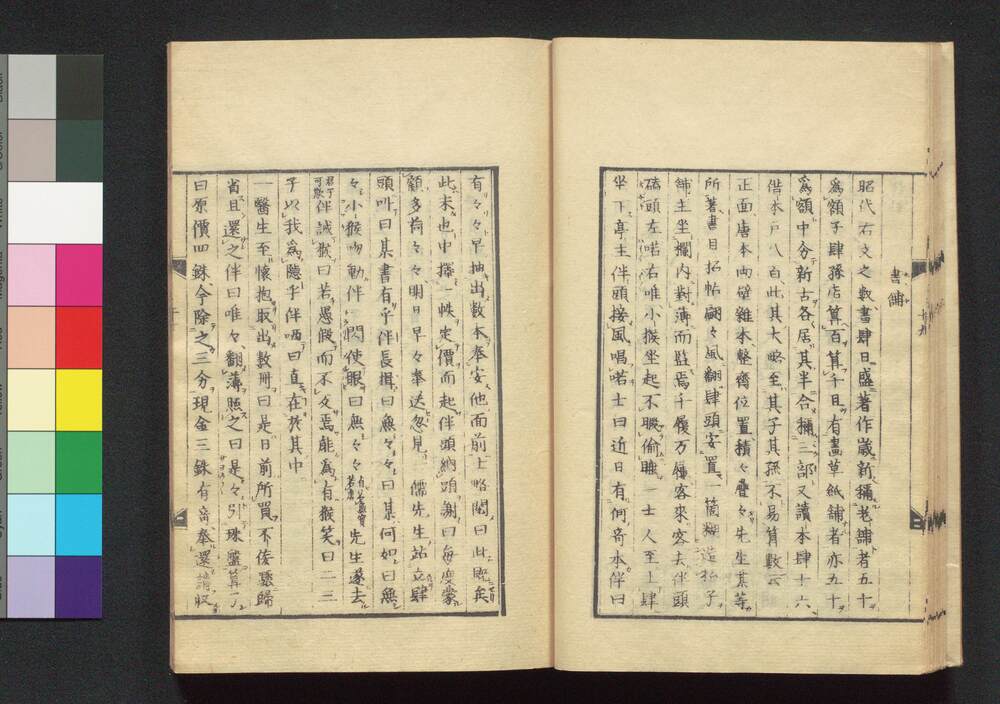 書鋪
昭代右文之數書肆日盛著作歲新稱老鋪者五十
爲額子肆孫店算百算千且有畫草紙鋪者亦五十
爲額中分新古各居其半合稱二部又讀本肆十六
借本戸八百此其大略至其子其孫不易算數云
正面唐本両壁雜本整齊位置積々疊々先生某等
所著書目招帖翩々風翻肆頭安置一箇糊造招子
鋪主坐欄内對簿而監焉千履万屩客來客去伴頭
磕頭左喏右唯小猴坐起不暇偷睡一士人至上肆
坐下亭主伴頭接風唱喏士曰近日有何奇本伴曰
有々々々早抽出數本奉安他面前士略閲曰此既矣
此未也中擇一帙定價而起伴頭納頭謝曰每度蒙
顧多荷々々明日早々奉送忽見一儒先生站立肆
頭叫曰某書有乎伴長揖曰無々々曰某何如曰無
々小猴吻動伴一閃使眼曰無々々先生遂去
伴誡猴曰若愚假而不反焉能爲有猴笑曰二三
子以我爲隱乎伴哂曰直在於其中
一醫生至懷抱取出數冊曰是日前所買不佞驀歸
省且還之伴曰唯々翻簿照之曰是々引珠盤算了
曰原價四銖今除之三分現金三銖有奇奉還請收